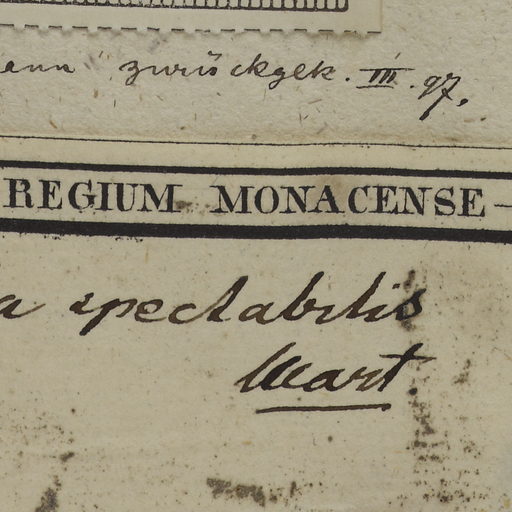 zurückgek. III. 97.
REGIUM MONACENSE —
a spectabilis
Mart.